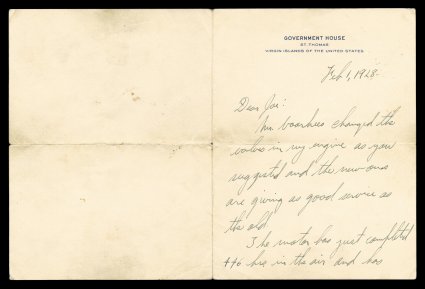 GOVERNMENT HOUSE
ST THOMAS
VIRGIN ISLANDS OF THE UNITED STATES
Feb 1, 1928
Dear Joe:
Mr Voorhies changed the
valves in my engine as you
suggested and the new ones
are giving as good service as
the old.
The motor has just completed
446 hrs in the air and has